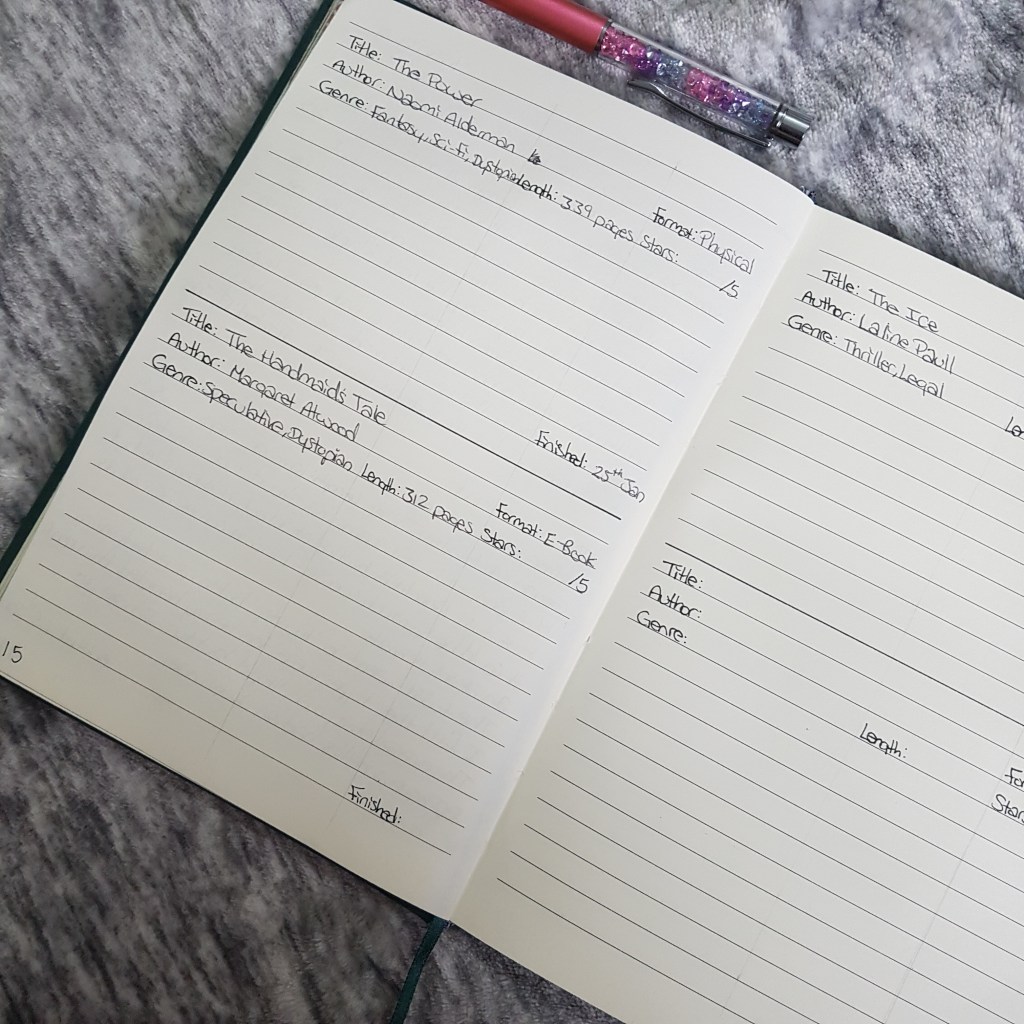 Title: The Power
Author: Naomi Alderman
Format: Physical
Genre: Fantasy, Sci-fi, Dystopia Length: 339 pages Stars: /5
Finished: 25th Jan
Title: The Handmaid's Tale
Author: Margaret Atwood
Format: E-Book
Genre: Speculative, Dystopian Length: 312 pages Stars: /5
Finished:
15
Title: The Ice
Author: Laline Paull
Genre: Thriller, Legal
Title:
Author:
Genre:
Length: